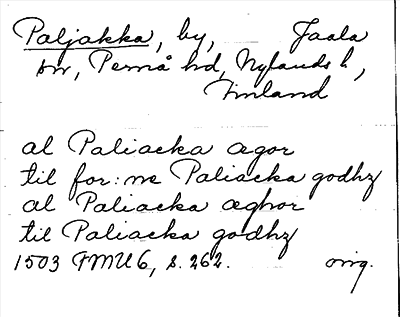 Paljakka, by, Jaala
sn, Pernå hd, Nylands l.,
Finland
al Paliacka ægor
til for:ne Paliacka godhz
al Paliacka æghor
til Paliacka godhz
1503 FMU 6, s. 262. orig.